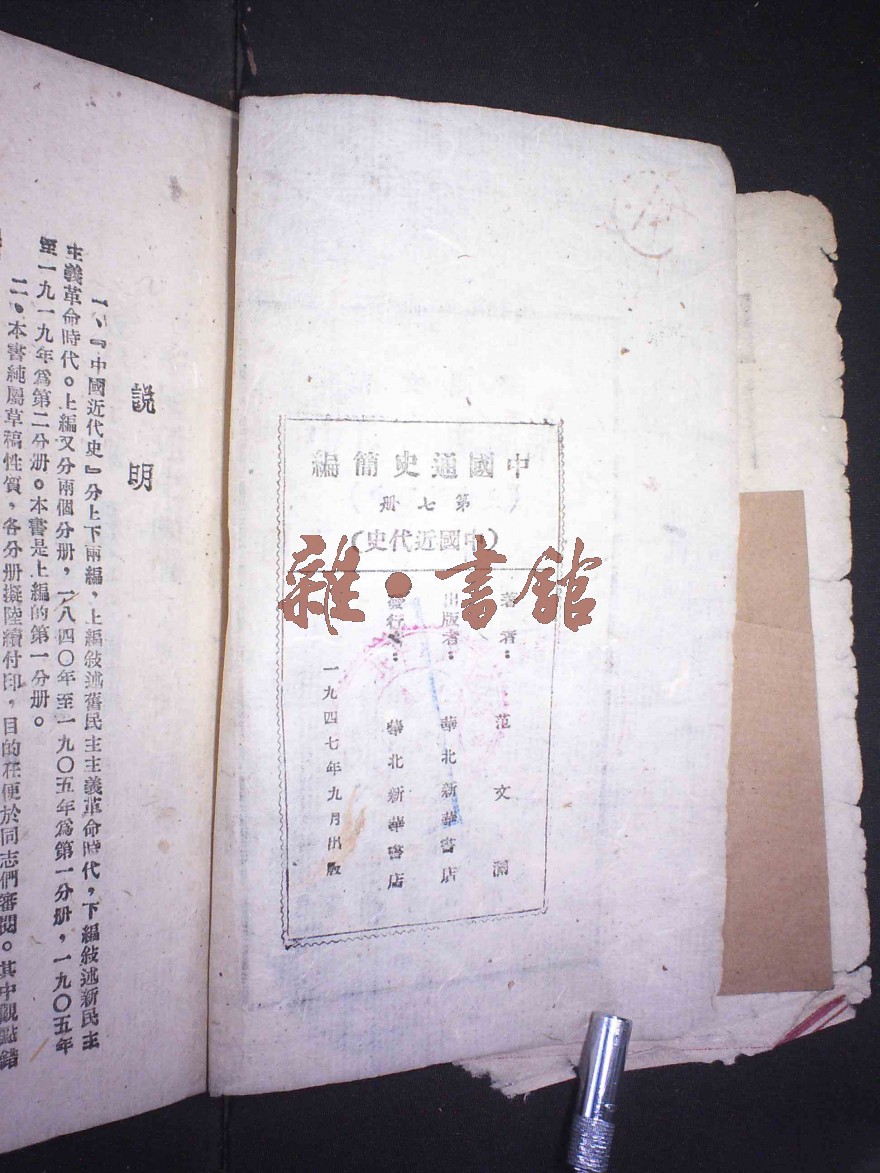 中國通史簡編
第七册
(中國近代史)
著者:范文瀾
出版者:華北新華書店
發行者:華北新華書店
一九四七年九月出版
雜·書館
說明
一、『中國近代史』分上下兩編,上編敍述舊民主主義革命時代,下編敍述新民主
主義革命時代。上編又分兩個分册,一八四〇年至一九〇五年爲第一分册,一九〇五年
至一九一九年爲第二分册。本書是上編的第一分册。
二。本書純屬草稿性質,各分册擬陸續付印,目的在便於同志們審閱。其中觀點錯